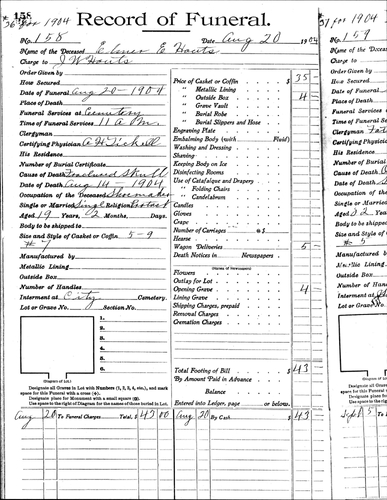 156
36 for 1904
Record of Funeral.
No. 158 Date Aug 20 1904
Name of the Deceased Elmer E Houts
Charge to J W Houts
Order Given by
How Secured
Date of Funeral Aug 20 - 1904
Place of Death
Funeral Services at Cemetery
Time of Funeral Services 11 A M.
Clergyman
Certifying Physician
His Residence
Number of Burial Certificate
Cause of Death Fractured Skull
Date of Death Aug 19 1904
Occupation of the Deceased Shoemaker
Single or Married Single Religion Protest
Aged 19 Years, 2 Months, Days.
Body to be shipped to
Size and Style of Casket or Coffin 5-9
# 7
Manufactured by
Metallic Lining
Outside Box
Number of Handles
Interment at City Cemetery.
Lot or Grave No. Section No.
1.
2.
3.
4.
5.
6.
(Diagram of Lot.)
Designate all Graves in Lot with Numbers (1, 2, 3, 4, etc.), and mark
space for this Funeral with a cross (+).
Designate place for Monument with a small square (□).
Use space to the right of Diagram for the names of those buried in Lot.
Aug 20 To Funeral Charges Total, $ 43 00
Price of Casket or Coffin $ 35 -
" Metallic Lining
" Outside Box 4
" Grave Vault
" Burial Robe
" Burial Slippers and Hose
Engraving Plate
Embalming Body (with Fluid)
Washing and Dressing
Shaving
Keeping Body on Ice
Disinfecting Rooms
Use of Catafalque and Drapery
" Folding Chairs
" Candelabrum
Candles
Gloves
Crape
Number of Carriages @ $
Hearse
Wagon Deliveries 5
Death Notices in Newspapers
(Names of Newspapers)
Flowers
Outlay for Lot
Opening Grave 4
Lining Grave
Shipping Charges, prepaid
Removal Charges
Cremation Charges
Total Footing of Bill $ 43
By Amount Paid in Advance
Balance
Entered into Ledger, page or below.
Aug 20 By Cash $ 43
37 for 1904
No. 159
Name of the
Charge to
Order Given
How Secured
Date of Funeral
Place of Death
Funeral Services
Time of Funeral
Clergyman
Certifying Physician
His Residence
Number of Burial
Cause of Death
Date of Death
Occupation of the
Single or Married
Aged 22 Years
Body to be shipped
Size and Style of
# 5
Manufactured by
Metallic Lining
Outside Box
Number of Handles
Interment at
Lot or Grave No.
(Diagram of Lot.)
Designate all
space for this
Designate
Use space
Sept 5